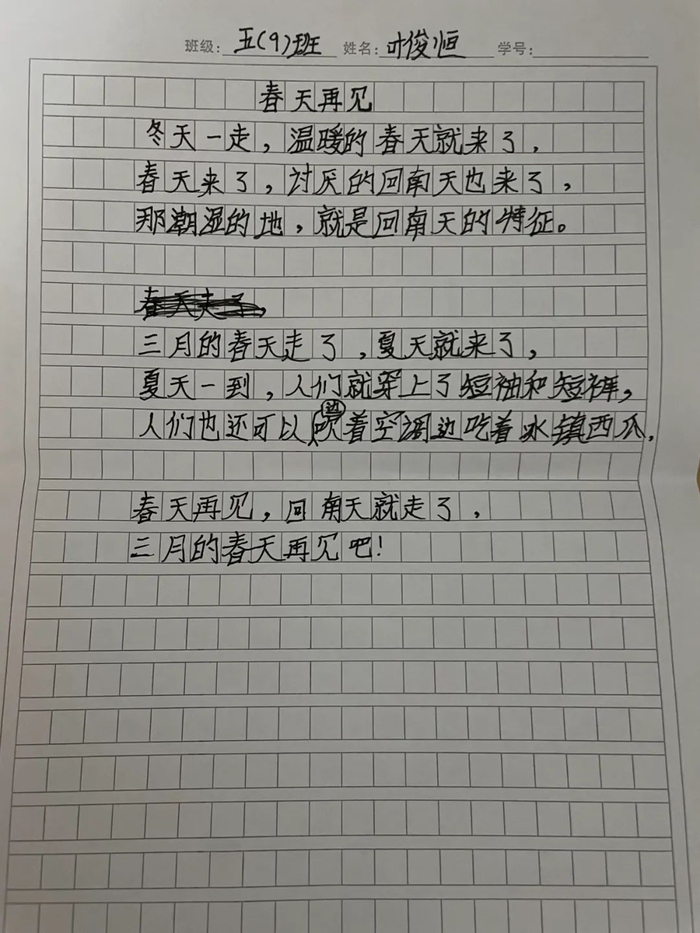 班级：五(9)班 姓名：叶俊恒 学号：
春天再见
冬天一走，温暖的春天就来了，
春天来了，讨厌的回南天也来了，
那潮湿的地，就是回南天的特征。
三月的春天走了，夏天就来了，
夏天一到，人们就穿上了短袖和短裤，
人们也还可以边吹着空调边吃着冰镇西瓜，
春天再见，回南天就走了，
三月的春天再见吧！